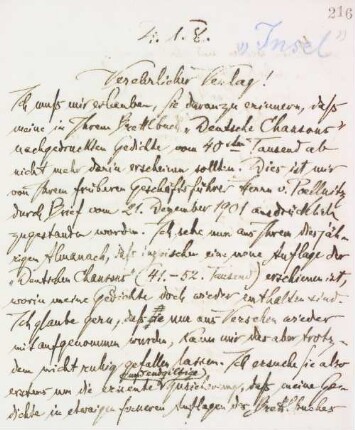 216
4. 1. 8.
"Insel"
Verehrlicher Verlag!
Ich muß mir erlauben, Sie daran zu erinnern, daß
meine in Ihrem Brettlbuch „Deutsche Chansons"
nachgedruckten Gedichte vom 40sten Tausend ab
nicht mehr darin erscheinen sollten. Dies ist mir
von Ihrem früheren Geschäftsführer Herrn v. Poellnitz
durch Brief vom 21. Dezember 1901 ausdrücklich
zugestanden worden. Ich sehe nun aus Ihrem diesjäh-
rigen Almanach, daß inzwischen eine neue Auflage der
„Deutschen Chansons" (41.-52. Tausend) erschienen ist,
worin meine Gedichte doch wieder enthalten sind.
Ich glaube gern, daß sie nur aus Versehen wieder
mit aufgenommen wurden, kann mir das aber trotz-
dem nicht ruhig gefallen lassen. Ich ersuche Sie also
und endgiltige
erneut um die Zusicherung, daß meine Ge-
dichte in etwaigen ferneren Auflagen des Brettlbuches